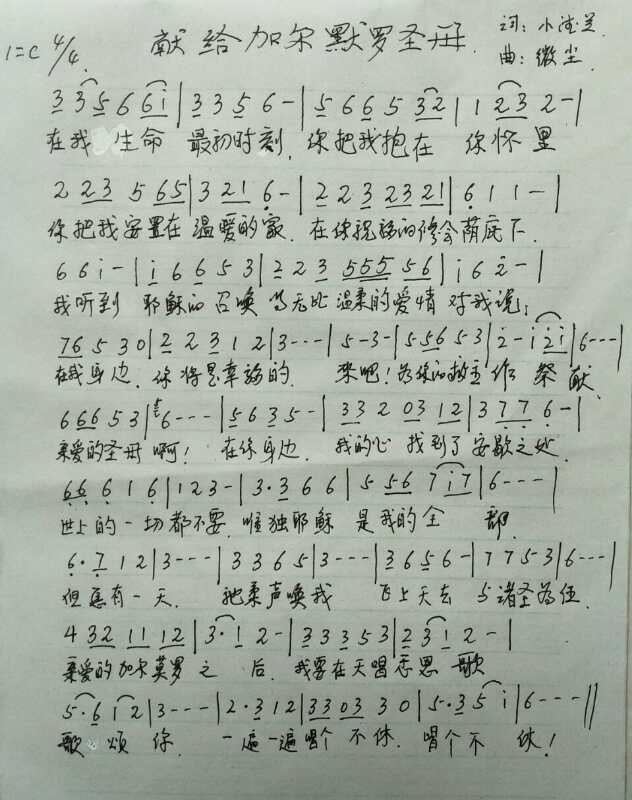 献给加尔默罗圣母
词：小德兰
1=C 4/4
曲：微尘
3 3 5 6 6 i | 3 3 5 6 - | 5 6 6 5 3 2 | 1 2 3 2 - |
在我 生命 最初时刻，你把我抱在 你怀里
2 2 3 5 6 5 | 3 2 1 6 - | 2 2 3 2 3 2 1 | 6 1 1 - |
你把我安置在 温暖的家. 在你祝福的修会荫庇下.
6 6 i - | i 6 6 5 3 | 2 2 3 5 5 5 5 6 | i 6 2 - |
我听到 耶稣的召唤 等无比 温柔的爱情 对我说：
7 6 5 3 0 | 2 2 3 1 2 | 3 - - - | 5 - 3 - | 5 5 6 5 3 | 2 - i 2 i | 6 - - - |
在我身边. 你将是幸福的. 来吧！为你的救主作 祭献.
6 6 6 5 3 | 6 - - - | 5 6 3 5 - | 3 3 2 0 3 1 2 | 3 7 7 6 - |
亲爱的圣母 啊！ 在你身边. 我的心 找到了 安歇之处.
6 6 6 1 6 | 1 2 3 - | 3 · 3 6 6 | 5 5 6 7 i 7 | 6 - - - |
世上的一切都不要. 唯独耶稣 是我的全 部.
6 · 7 1 2 | 3 - - - | 3 3 6 5 | 3 - - - | 3 6 5 6 - | 7 7 5 3 | 6 - - - |
但愿有一天. 祂柔声唤我 飞上天去 与诸圣为伍.
4 3 2 1 1 1 2 | 3 · 1 2 - | 3 3 3 5 3 | 2 3 1 2 - |
亲爱的加尔莫罗 之 后. 我要在天唱恋恩 歌
5 · 6 i 2 | 3 - - - | 2 · 3 1 2 | 3 3 0 3 3 0 | 5 · 3 5 i | 6 - - - ‖
歌 颂 你. 一遍一遍唱个 不休. 唱个不 休！